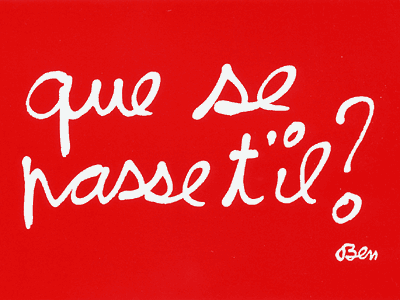 que se
passe t'il?
Ben